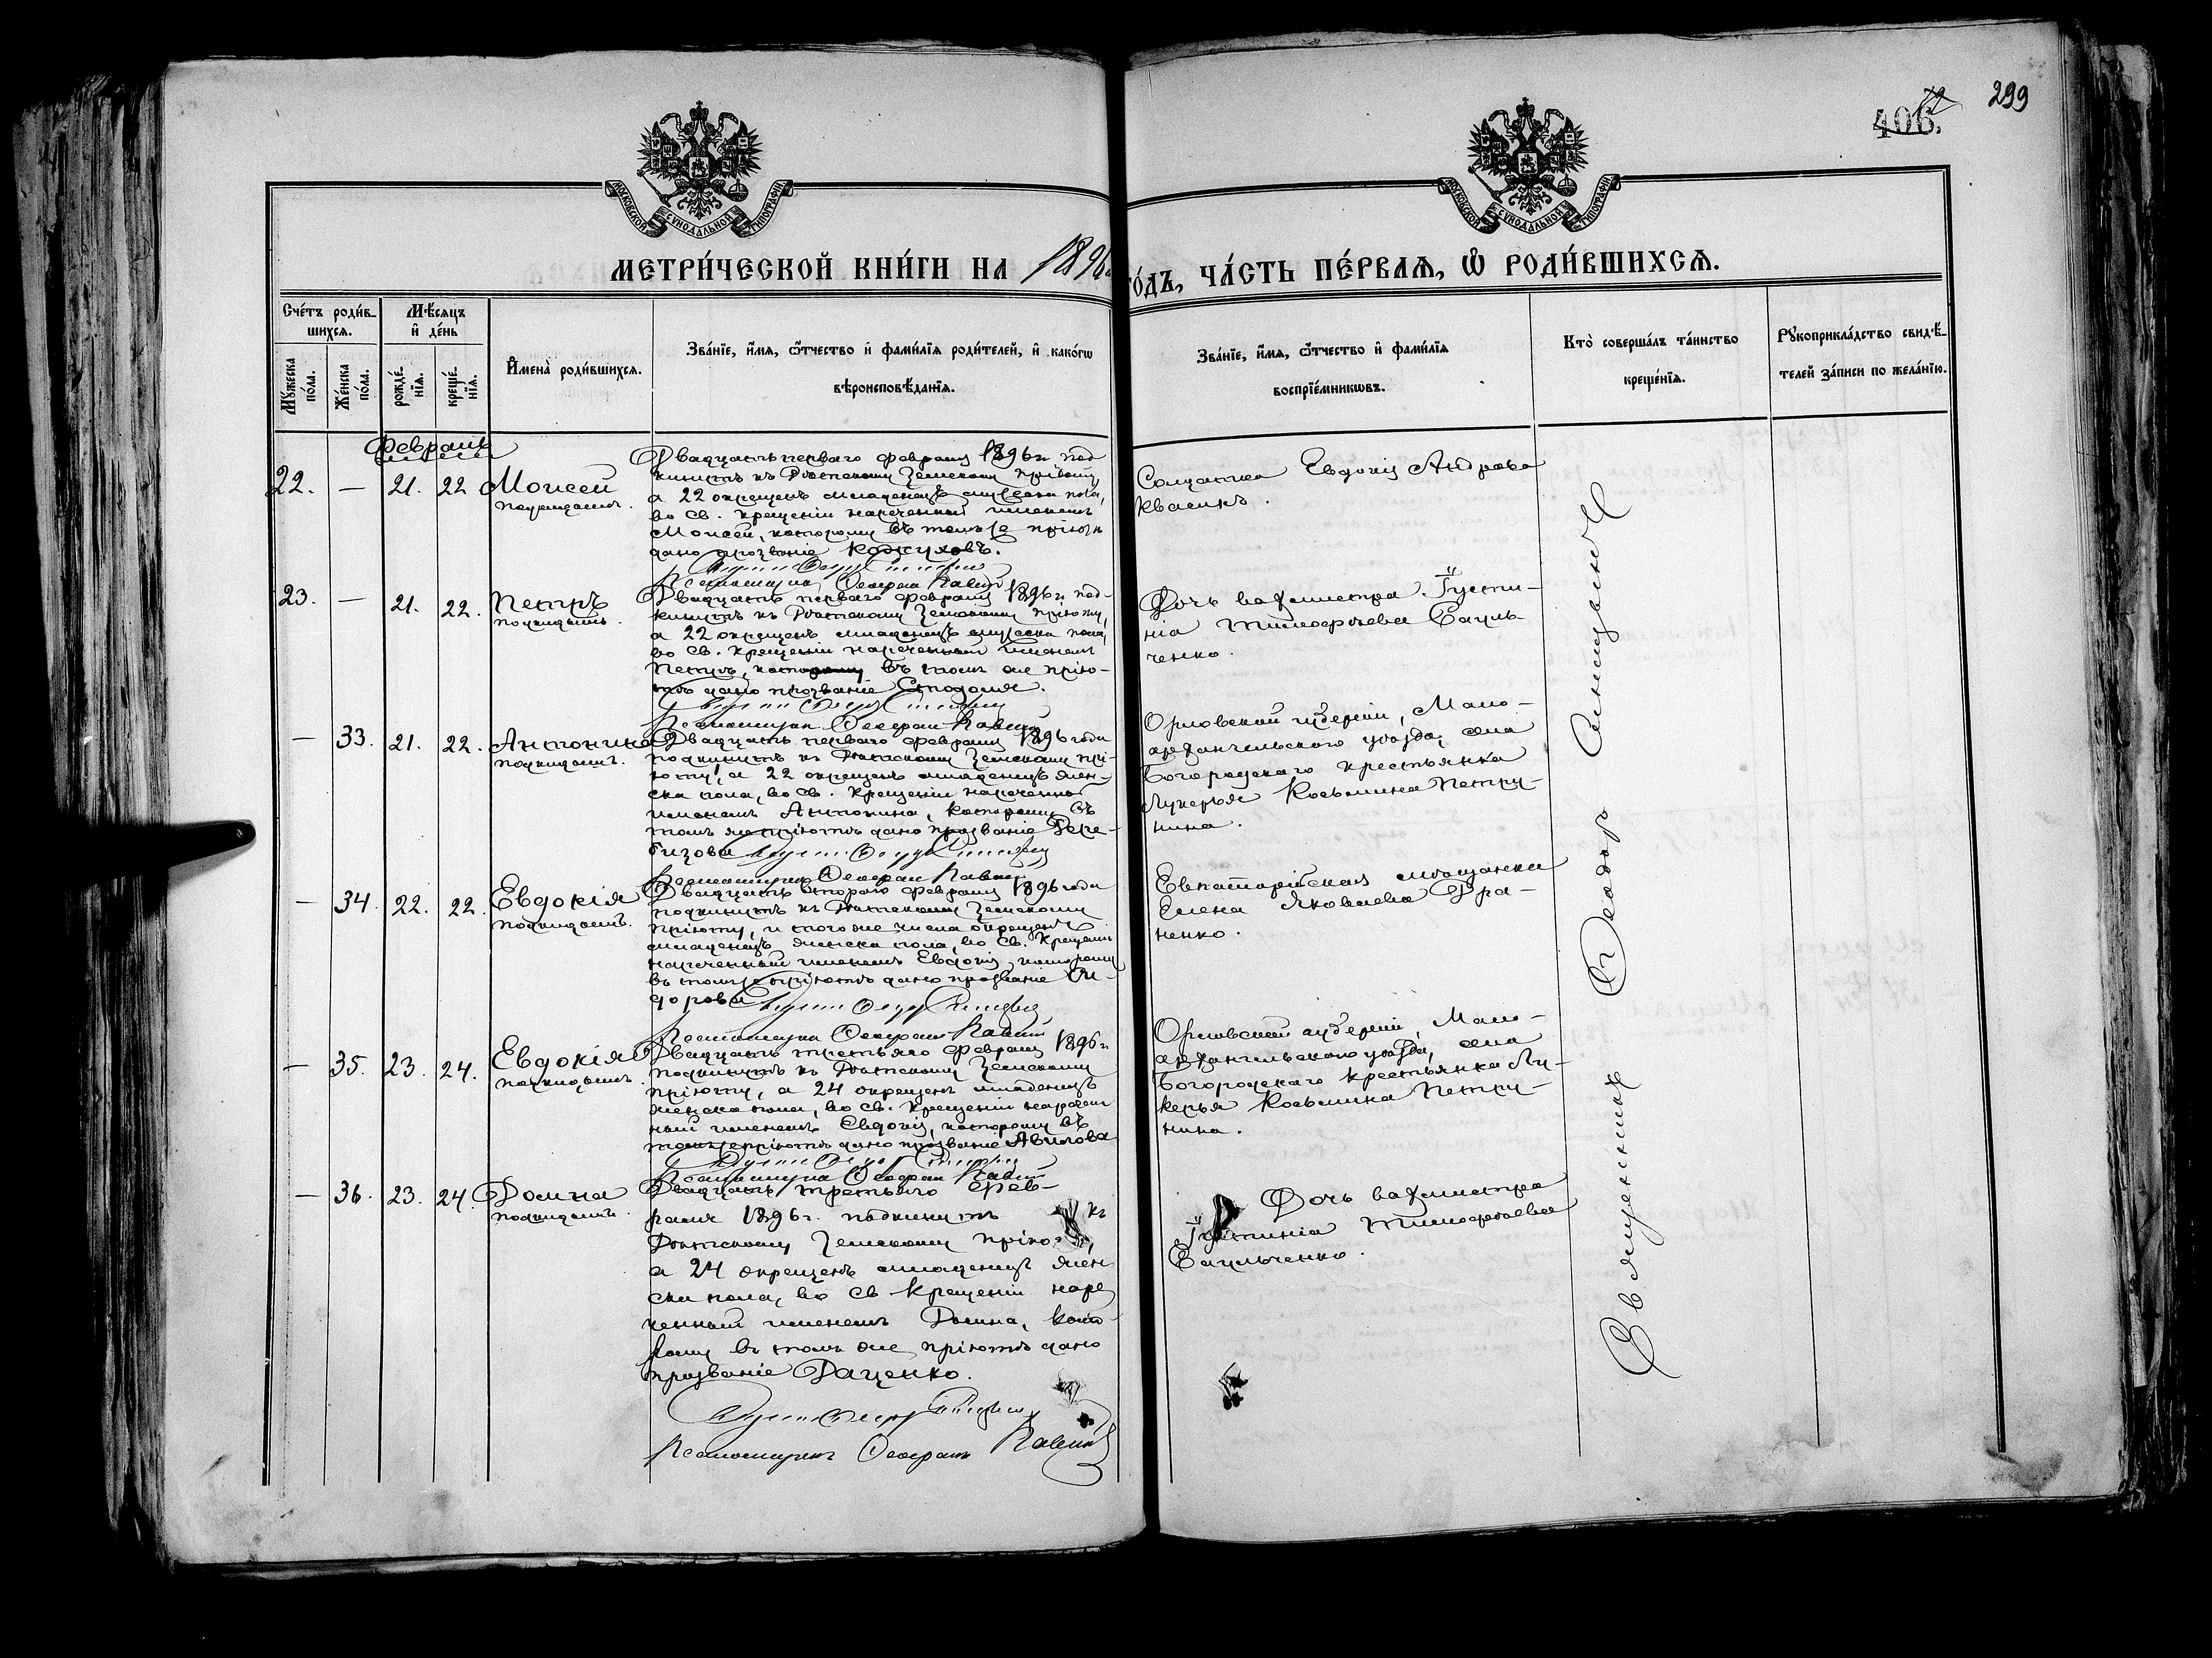 299
406.
МОСКОВСКОЙ СѴНОДАЛЬНОЙ ТИПОГРАФІИ
МОСКОВСКОЙ СѴНОДАЛЬНОЙ ТИПОГРАФІИ
МЕТРИ́ЧЕСКОЙ КНИ́ГИ НА 1896 ГО́ДЪ, ЧА́СТЬ ПЕ́РВАѦ, Ѡ҆ РОДИ́ВШИХСѦ.
Сче́тъ роди́в-
шихсѧ.
Мꙋ́жеска по́ла.
Же́нска по́ла.
Мѣ́сѧцъ и҆ де́нь
рожде́-нїѧ.
креще́-нїѧ.
И҆мена̀ роди́вшихсѧ.
Зва́нїе, и҆́мѧ, ѻ҆́тчество и҆ фами́лїѧ роди́телей, и҆ како́гѡ
вѣроисповѣ́данїѧ.
Зва́нїе, и҆́мѧ, ѻ҆́тчество и҆ фами́лїѧ
воспрїе́мникѡвъ.
Кто̀ соверша́лъ та́инство
креще́нїѧ.
Рꙋкоприкла́дство свидѣ́-
телей за́писи по жела́нїю.
Февраль
22. — 21. 22 Моисей
подкидышъ.
Двадцать перваго февраля 1896 г. под
кинутъ къ Дѣтскому Земскому пріюту,
а 22 окрещенъ младенецъ мужеска пола,
во Св. Крещеніи нареченный именемъ
Моисей, которому въ томъ же пріютѣ
дано прозваніе Кожуховъ.
Псаломщикъ
Солдатка Евдокія Андреева
Квасикъ.
23. — 21. 22. Петръ
подкидышъ.
Двадцать перваго февраля 1896 г. под-
кинутъ къ Дѣтскому Земскому пріюту,
а 22 окрещенъ младенецъ мужеска пола,
во Св. Крещеніи нареченный именемъ
Петръ, которому въ томъ же прію-
тѣ дано прозваніе
Псаломщикъ
Дочь вахмистра Іусти-
нія Тимофѣева Бацуль-
ченко.
— 33. 21. 22. Антонина
подкидышъ.
Двадцать перваго февраля 1896 года
подкинутъ къ Дѣтскому Земскому прі-
юту, а 22 окрещенъ младенецъ жен-
ска пола, во Св. Крещеніи нареченный
именемъ Антонина, которому въ
томъ же пріютѣ дано прозваніе Бере-
гизова
Псаломщикъ
Орловской губерніи, Мало-
архангельскаго уѣзда, села
Богородскаго крестьянка
Лукерья Косьмина Петру-
нина.
— 34. 22. 22. Евдокія
подкидышъ.
Двадцать второго февраля 1896 года
подкинутъ къ Дѣтскому Земскому
пріюту, и того же числа окрещенъ
младенецъ женска пола, во Св. Крещеніи
нареченный именемъ Евдокія, которому
въ томъ же пріютѣ дано прозваніе Си-
дорова
Псаломщикъ
Евпаторійская мѣщанка
Елена Яковлева Гра-
ненко.
— 35. 23. 24. Евдокія
подкидышъ.
Двадцать третьяго февраля 1896 г.
подкинутъ къ Дѣтскому Земскому
пріюту, а 24 окрещенъ младенецъ
женска пола, во Св. Крещеніи наречен
ный именемъ Евдокія, которому въ
томъ же пріютѣ дано прозваніе Авилова
Псаломщикъ
Орловской губерніи, Мало-
архангельскаго уѣзда, села
Богородскаго крестьянка Лу-
керья Косьмина Петру-
нина.
— 36. 23. 24. Домна
подкидышъ.
Двадцать третьяго Фев-
раля 1896 г. подкинутъ къ
Дѣтскому Земскому пріюту,
а 24 окрещенъ младенецъ жен
ска пола, во Св Крещеніи наре
ченный именемъ Домна, кото-
рому въ томъ же пріютѣ дано
прозваніе Даценко.
Псаломщикъ
Дочь вахмистра
Іустинія Тимофѣева
Бацульченко.
Священникъ Ѳеодоръ